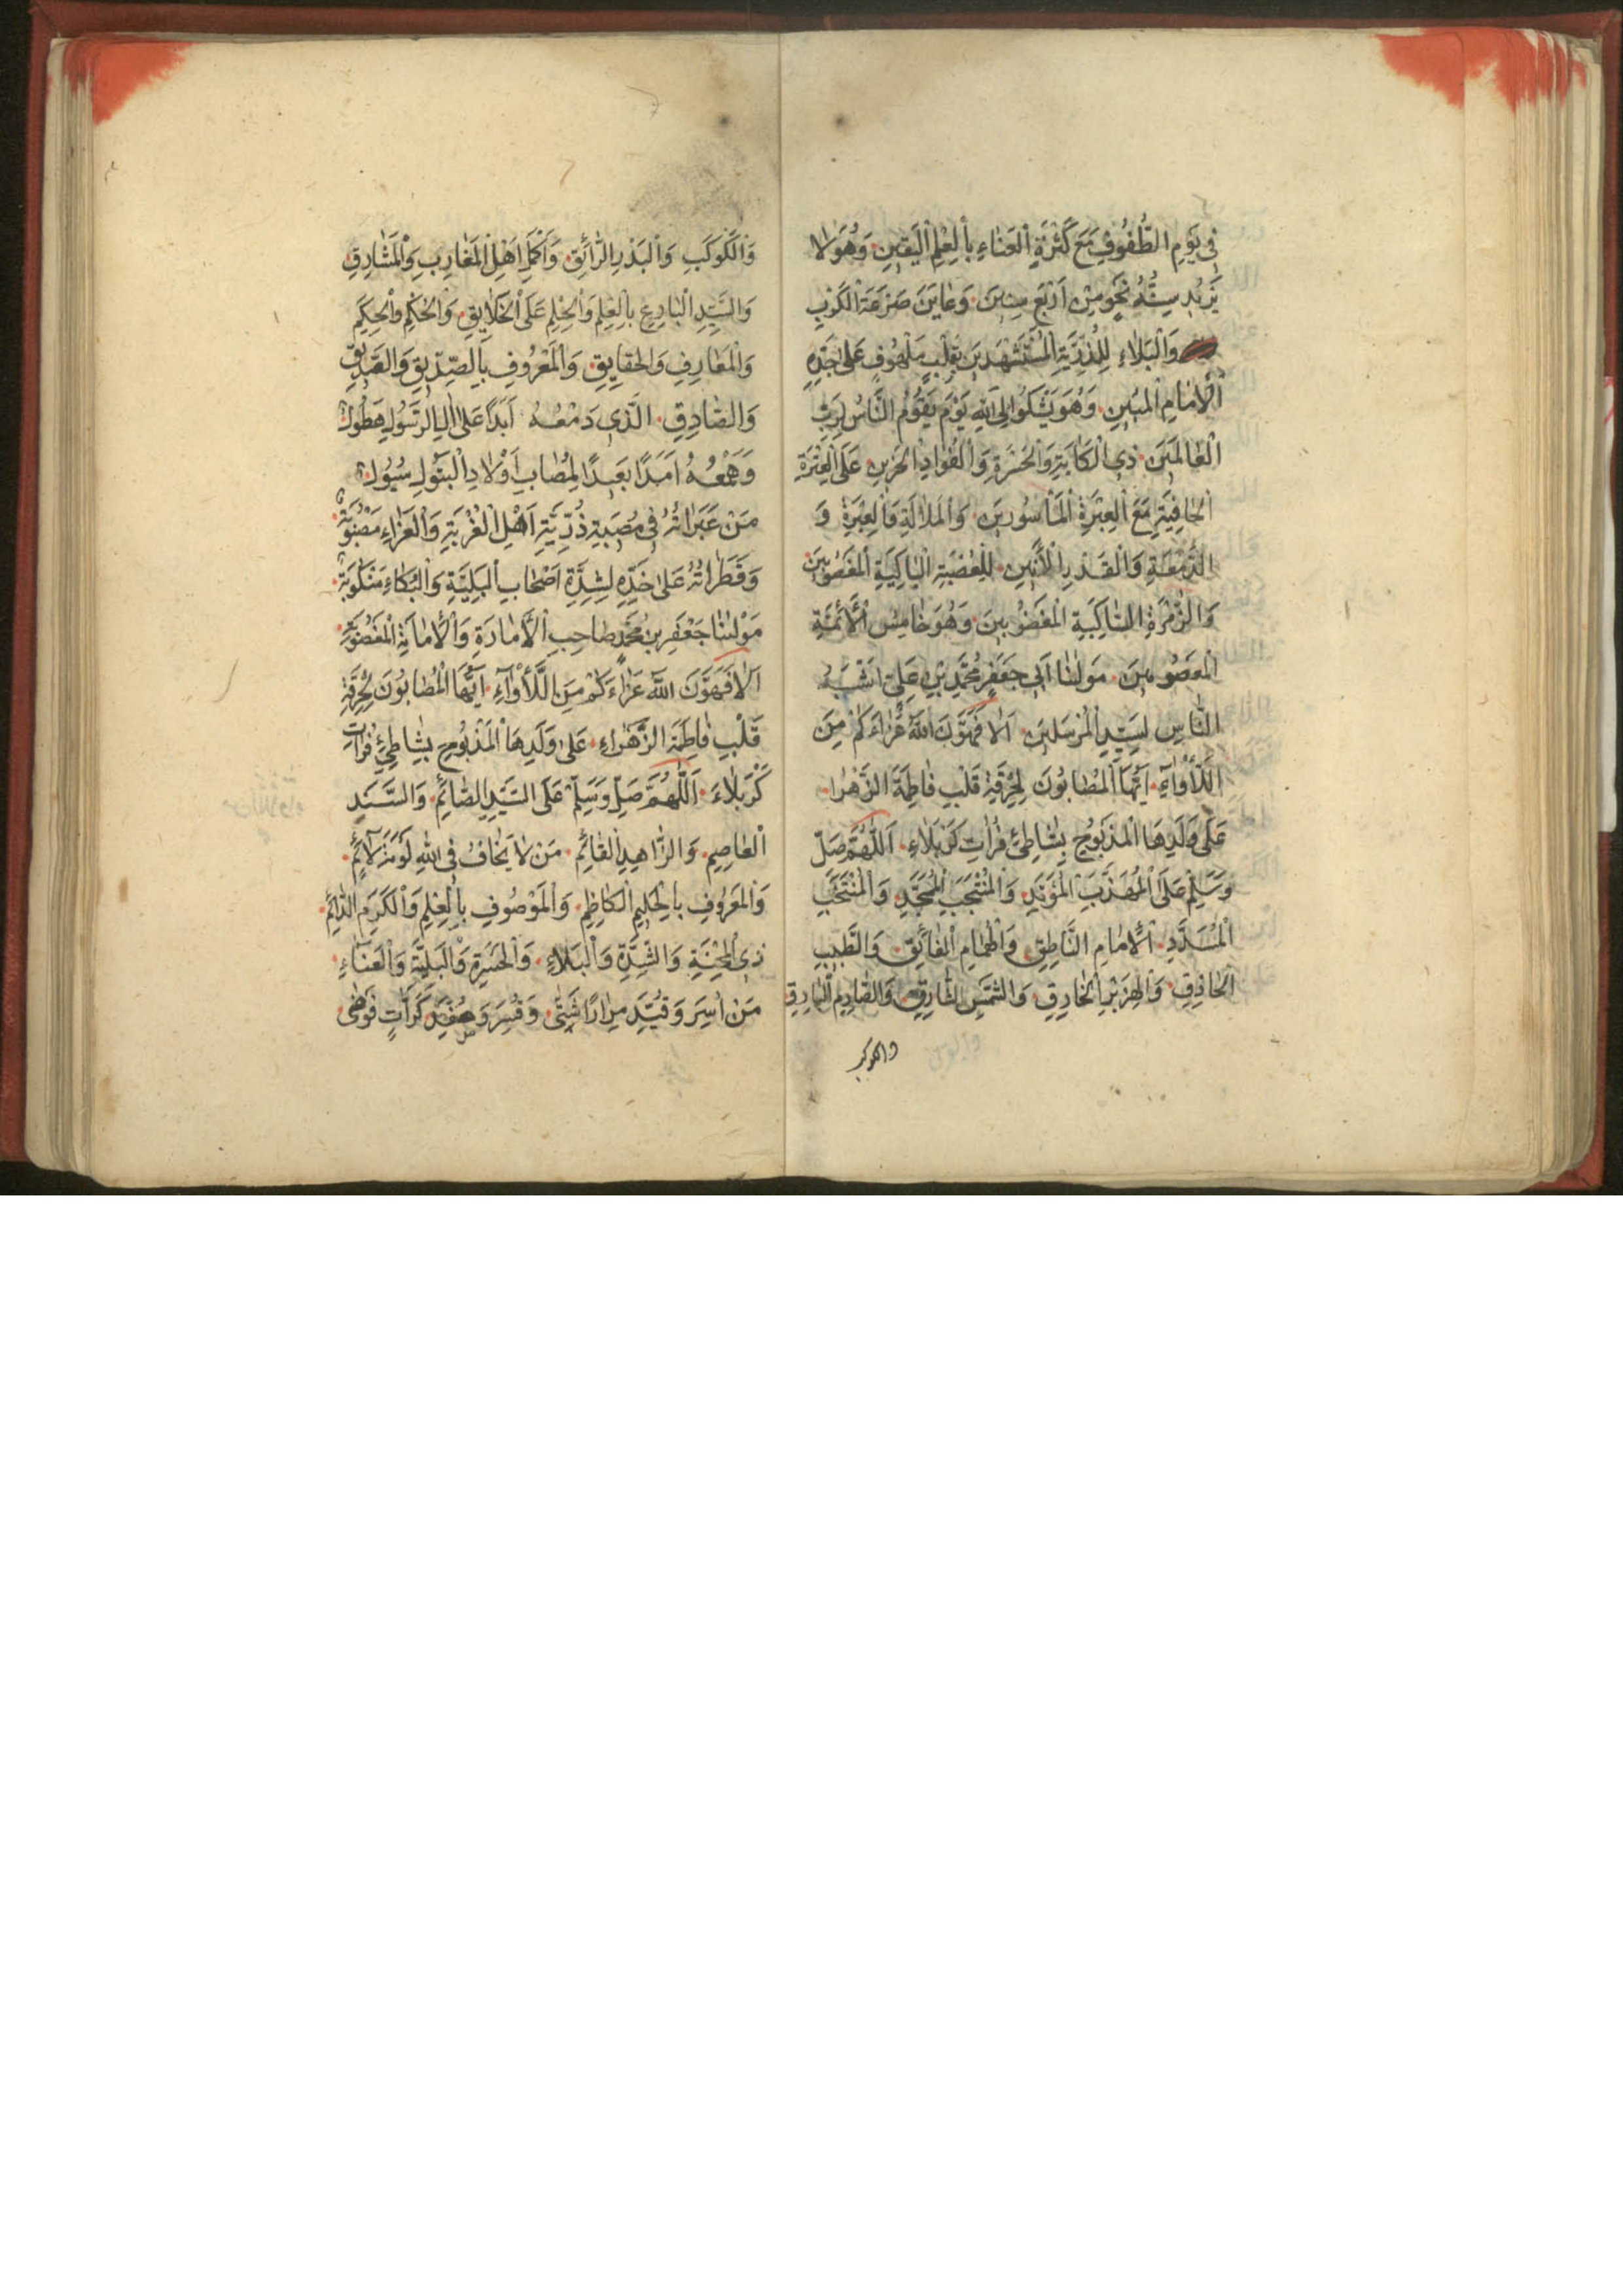 فِي يَوْمِ الطُّفُوفِ مَعَ كَثْرَةِ الْعَنَاءِ بِالْعِلْمِ الْيَقِينِ وَهُوَ لَا
يَزِيدُ سِنُّهُ نَحْوٍ مِنْ أَرْبَعِ سِنِينَ وَعَايَنَ صَرْعَةَ الْكَرْبِ
وَالْبَلَاءِ لِلذُّرِّيَّةِ الْمُسْتَشْهَدِينَ بِقَلْبٍ مَلْهُوفٍ عَلَى جَدِّهِ
الْإِمَامِ الْمُبِينِ وَهُوَ يَشْكُو إِلَى اللهِ يَوْمَ يَقُومُ النَّاسُ لِرَبِّ
الْعَالَمِينَ ذِي الْكَابَةِ وَالْحَسْرَةِ وَالْفُوَادِ الْحَزِينِ عَلَى الْعِتْرَةِ
الْجَافِيَةِ مَعَ الْعِبْرَةِ الْمَأْسُورِينَ وَالْمَلَالَةِ وَالْعِبْرَةِ وَ
الدَّمْعَةِ وَالْقَدْرِ الْأَنِينِ لِلْعُصْبَةِ الْبَاكِيَةِ الْمَغْصُوبِينَ
وَالزُّمْرَةِ السَّاكِبَةِ الْمَغْضُوبِينَ وَهُوَ خَامِسُ الْأَئِمَّةِ
الْمَعْصُومِينَ مَوْلَانَا أَبِي جَعْفَرٍ مُحَمَّدِ بْنِ عَلِيٍّ أَشْبَهُ
النَّاسِ لِسَيِّدِ الْمُرْسَلِينَ أَلَا فَهَوَّنَ اللهُ عَزَاءَكُمْ مِنَ
اللَّأْوَاءِ أَيُّهَا الْمُصَابُونَ لِحُرْقَةِ قَلْبِ فَاطِمَةَ الزَّهْرَا
عَلَى وَلَدِهَا الْمَذْبُوحِ بِشَاطِئِ فُرَاتِ كَرْبَلَاءَ اَللّٰهُمَّ صَلِّ
وَسَلِّمْ عَلَى الْمُهَذَّبِ الْمُؤَيَّدِ وَالْمُنْتَجَبِ الْمُمَجَّدِ وَالْمُنْتَخَبِ
الْمُسَدَّدِ الْإِمَامِ النَّاطِقِ وَالْهُمَامِ الْفَائِقِ وَالطَّبِيبِ
الْحَاذِقِ وَالْهِزَبْرِ الْخَارِقِ وَالشَّمْسِ الشَّارِقِ وَالصَّارِمِ الْبَارِقِ
والكوكب
وَالْكَوْكَبِ وَالْبَدْرِ الرَّائِقِ وَأَكْمَلِ أَهْلِ الْمَغَارِبِ وَالْمَشَارِقِ
وَالسَّيِّدِ الْبَارِعِ بِالْعِلْمِ وَالْحِلْمِ عَلَى الْخَلَايِقِ وَالْحُكْمِ وَالْحِكَمِ
وَالْمَعَارِفِ وَالْحَقَايِقِ وَالْمَعْرُوفِ بِالصِّدِّيقِ وَالصَّدِيقِ
وَالصَّادِقِ الَّذِي دَمْعُهُ أَبَدًا عَلَى اٰلِ الرَّسُولِ هَطُولٌ
وَهَمْعُهُ أَمَدًا بَعِيدًا لِمُصَابِ أَوْلَادِ الْبَتُولِ سُيُولٌ
مَنْ عَبَرَاتُهُ فِي مُصِيبَةِ ذُرِّيَّةِ أَهْلِ الْغُرْبَةِ وَالْعَزَاءِ مَصْبُوبَةٌ
وَقَطَرَاتُهُ عَلَى خَدِّهِ لِشِدَّةِ أَصْحَابِ الْبَلِيَّةِ وَالْبُكَاءِ مَسْكُوبَةٌ
مَوْلَانَا جَعْفَرِ بْنِ مُحَمَّدٍ صَاحِبِ الْأَمَارَةِ وَالْإِمَامَةِ الْمَغْصُوبَةِ
أَلَا فَهَوَّنَ اللهُ عَزَاءَكُمْ مِنَ اللَّأْوَاءِ أَيُّهَا الْمُصَابُونَ لِحُرْقَةِ
قَلْبِ فَاطِمَةِ الزَّهْرَاءِ عَلَى وَلَدِهَا الْمَذْبُوحِ بِشَاطِئِ فُرَاتِ
كَرْبَلَاءَ اَللّٰهُمَّ صَلِّ وَسَلِّمْ عَلَى السَّيِّدِ الصَّائِمِ وَالسَّنَدِ
الْعَاصِمِ وَالزَّاهِدِ الْقَائِمِ مَنْ لَا يَخَافُ فِي اللهِ لَوْمَةَ لَائِمٍ
وَالْمَعْرُوفِ بِالْحَلِيمِ الْكَاظِمِ وَالْمَوْصُوفِ بِالْعِلْمِ وَالْكَرَمِ الدَّائِمِ
ذِي الْمِحْنَةِ وَالشِّدَّةِ وَالْبَلَاءِ وَالْحَسْرَةِ وَالْبَلِيَّةِ وَالْعَنَاءِ
مَنْ أُسِرَ وَقُيِّدَ مِرَارًا شَتَّى وَقُسِرَ وَصُفِّدَ كَرَّاتٍ فَوْضَى